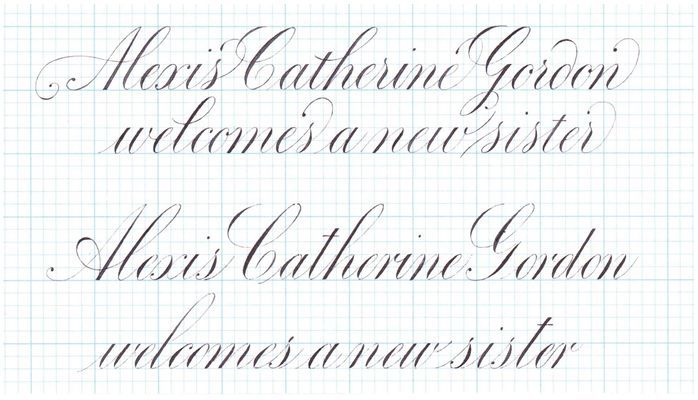 Alexis Catherine Gordon
welcomes a new sister
Alexis Catherine Gordon
welcomes a new sister